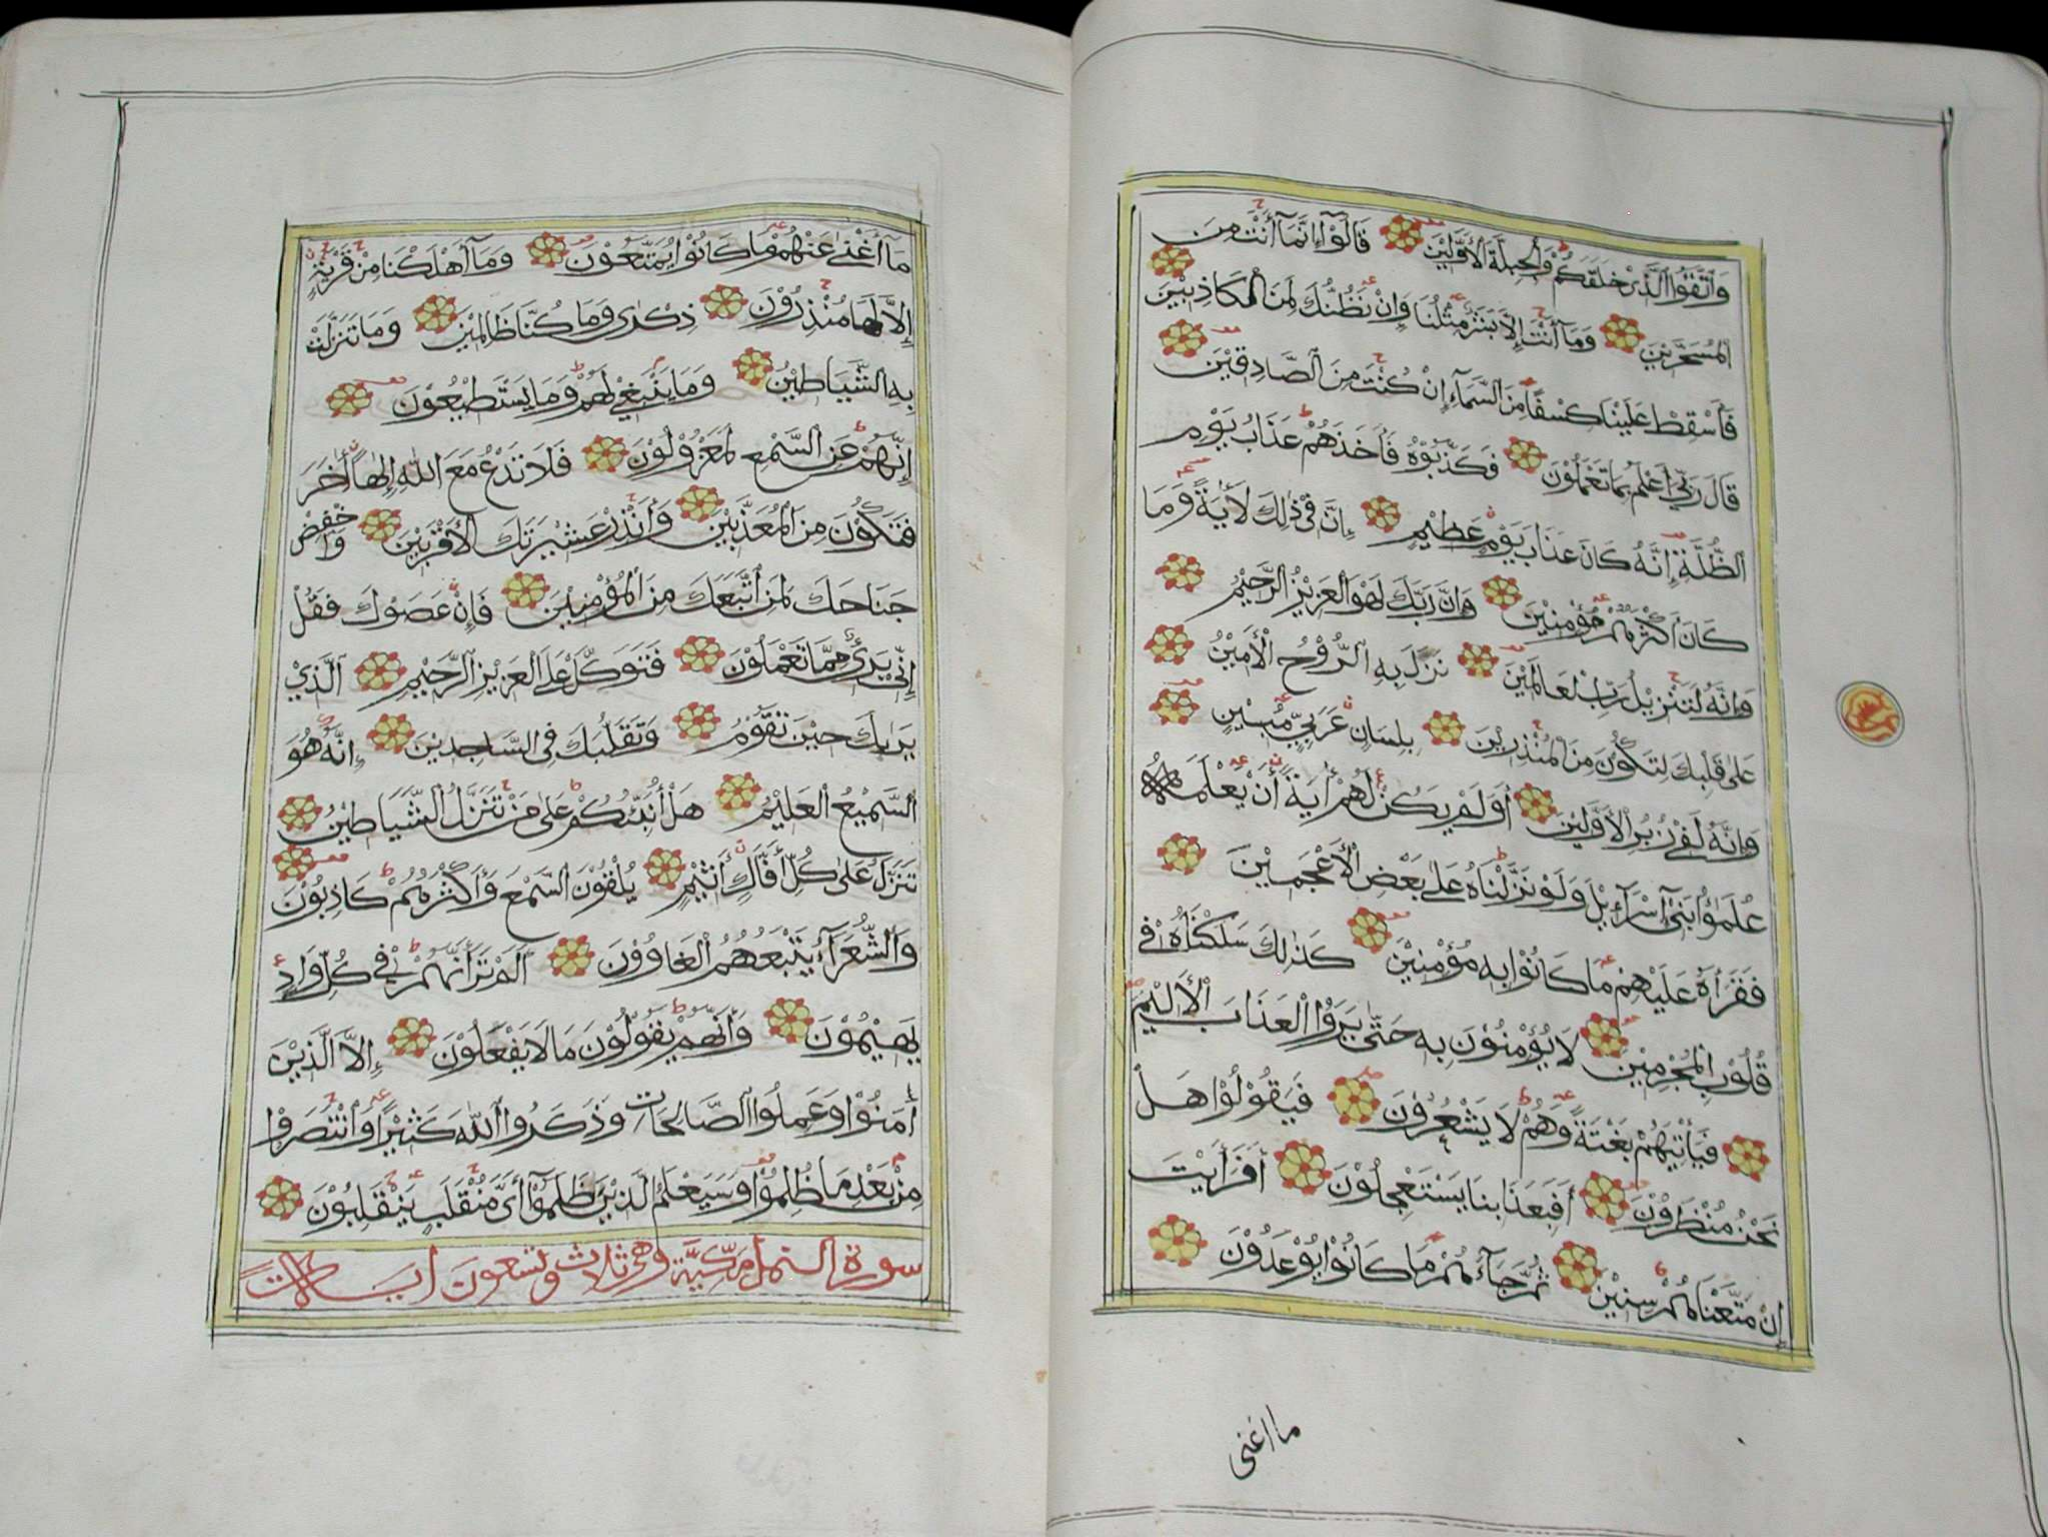 وَاتَّقُوا الَّذِيْ خَلَقَكُمْ وَالْجِبِلَّةَ الْأَوَّلِيْنَ قَالُوْٓا إِنَّمَآ أَنْتَ مِنَ
الْمُسَحَّرِيْنَ وَمَآ أَنْتَ إِلَّا بَشَرٌ مِثْلُنَا وَإِنْ نَظُنُّكَ لَمِنَ الْكَاذِبِيْنَ
فَأَسْقِطْ عَلَيْنَا كِسْفًا مِنَ السَّمَآءِ إِنْ كُنْتَ مِنَ الصَّادِقِيْنَ
قَالَ رَبِّيْ أَعْلَمُ بِمَا تَعْمَلُوْنَ فَكَذَّبُوْهُ فَأَخَذَهُمْ عَذَابُ يَوْمِ
الظُّلَّةِ إِنَّهُ كَانَ عَذَابَ يَوْمٍ عَظِيْمٍ إِنَّ فِيْ ذٰلِكَ لَأٰيَةً وَمَا
كَانَ أَكْثَرُهُمْ مُؤْمِنِيْنَ وَإِنَّ رَبَّكَ لَهُوَ الْعَزِيْزُ الرَّحِيْمُ
وَإِنَّهُ لَتَنْزِيْلُ رَبِّ الْعَالَمِيْنَ نَزَلَ بِهِ الرُّوْحُ الْأَمِيْنُ
عَلٰى قَلْبِكَ لِتَكُوْنَ مِنَ الْمُنْذِرِيْنَ بِلِسَانٍ عَرَبِيٍّ مُبِيْنٍ
وَإِنَّهُ لَفِيْ زُبُرِ الْأَوَّلِيْنَ أَوَلَمْ يَكُنْ لَهُمْ أٰيَةً أَنْ يَعْلَمَهُ
عُلَمٰٓؤُا بَنِيْٓ إِسْرَآءِيْلَ وَلَوْ نَزَّلْنَاهُ عَلٰى بَعْضِ الْأَعْجَمِيْنَ
فَقَرَأَهُ عَلَيْهِمْ مَا كَانُوْا بِهِ مُؤْمِنِيْنَ كَذٰلِكَ سَلَكْنَاهُ فِيْ
قُلُوْبِ الْمُجْرِمِيْنَ لَا يُؤْمِنُوْنَ بِهِ حَتّٰى يَرَوُا الْعَذَابَ الْأَلِيْمَ
فَيَأْتِيَهُمْ بَغْتَةً وَهُمْ لَا يَشْعُرُوْنَ فَيَقُوْلُوْا هَلْ
نَحْنُ مُنْظَرُوْنَ أَفَبِعَذَابِنَا يَسْتَعْجِلُوْنَ أَفَرَأَيْتَ
إِنْ مَتَّعْنَاهُمْ سِنِيْنَ ثُمَّ جَآءَهُمْ مَا كَانُوْا يُوْعَدُوْنَ
ما اغنى
مَآ أَغْنٰى عَنْهُمْ مَا كَانُوْا يُمَتَّعُوْنَ وَمَآ أَهْلَكْنَا مِنْ قَرْيَةٍ
إِلَّا لَهَا مُنْذِرُوْنَ ذِكْرٰى وَمَا كُنَّا ظَالِمِيْنَ وَمَا تَنَزَّلَتْ
بِهِ الشَّيَاطِيْنُ وَمَا يَنْبَغِيْ لَهُمْ وَمَا يَسْتَطِيْعُوْنَ
إِنَّهُمْ عَنِ السَّمْعِ لَمَعْزُوْلُوْنَ فَلَا تَدْعُ مَعَ اللّٰهِ إِلٰهًا أٰخَرَ
فَتَكُوْنَ مِنَ الْمُعَذَّبِيْنَ وَأَنْذِرْ عَشِيْرَتَكَ الْأَقْرَبِيْنَ وَاخْفِضْ
جَنَاحَكَ لِمَنِ اتَّبَعَكَ مِنَ الْمُؤْمِنِيْنَ فَإِنْ عَصَوْكَ فَقُلْ
إِنِّيْ بَرِيْٓءٌ مِمَّا تَعْمَلُوْنَ فَتَوَكَّلْ عَلَى الْعَزِيْزِ الرَّحِيْمِ الَّذِيْ
يَرٰىكَ حِيْنَ تَقُوْمُ وَتَقَلُّبَكَ فِي السَّاجِدِيْنَ إِنَّهُ هُوَ
السَّمِيْعُ الْعَلِيْمُ هَلْ أُنَبِّئُكُمْ عَلٰى مَنْ تَنَزَّلُ الشَّيَاطِيْنُ
تَنَزَّلُ عَلٰى كُلِّ أَفَّاكٍ أَثِيْمٍ يُلْقُوْنَ السَّمْعَ وَأَكْثَرُهُمْ كَاذِبُوْنَ
وَالشُّعَرَآءُ يَتَّبِعُهُمُ الْغَاوُوْنَ أَلَمْ تَرَ أَنَّهُمْ فِيْ كُلِّ وَادٍ
يَهِيْمُوْنَ وَأَنَّهُمْ يَقُوْلُوْنَ مَا لَا يَفْعَلُوْنَ إِلَّا الَّذِيْنَ
أٰمَنُوْا وَعَمِلُوا الصَّالِحَاتِ وَذَكَرُوا اللّٰهَ كَثِيْرًا وَانْتَصَرُوْا
مِنْ بَعْدِ مَا ظُلِمُوْا وَسَيَعْلَمُ الَّذِيْنَ ظَلَمُوْٓا أَيَّ مُنْقَلَبٍ يَنْقَلِبُوْنَ
سورة النمل مَكِّيَّة وهي ثلاث وتسعون آيات